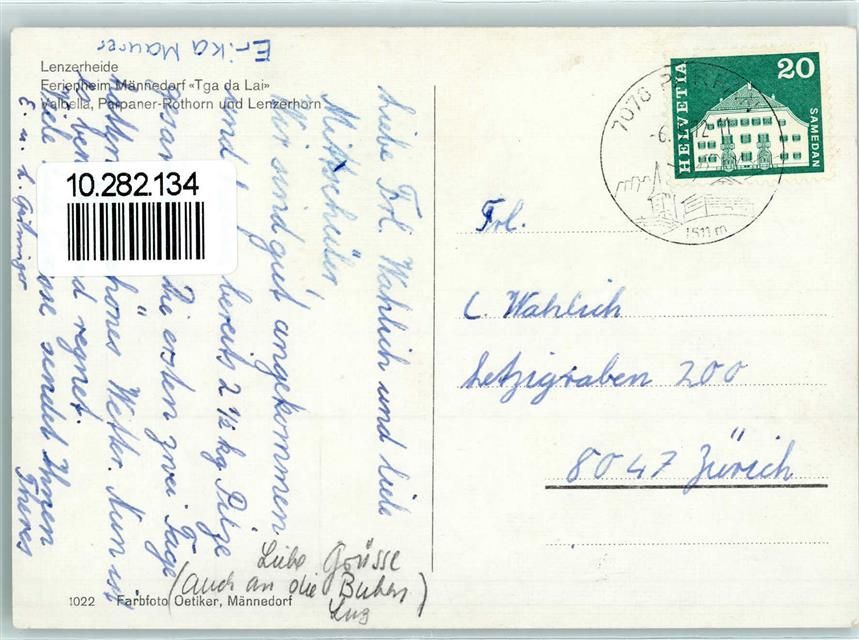 Lenzerheide
Ferienheim Männedorf «Tga da Lai»
Valbella, Parpaner-Rothorn und Lenzerhorn
10.282.134
Liebe Frl. Wahlich und liebe
Mitschüler,
Wir sind gut angekommen
und bereits 2 ½ kg Pilze
Die ersten zwei Tage
schönes Wetter. Nun ist
regnet
sendet Ihnen
Theres
Erika Maurer
E. u. L.
Liebe Grüsse
(auch an die Buben)
1022 Farbfoto Oetiker, Männedorf
HELVETIA
20
SAMEDAN
7076
1511 m
Frl.
C. Wahlich
Letzigraben 200
8047 Zürich